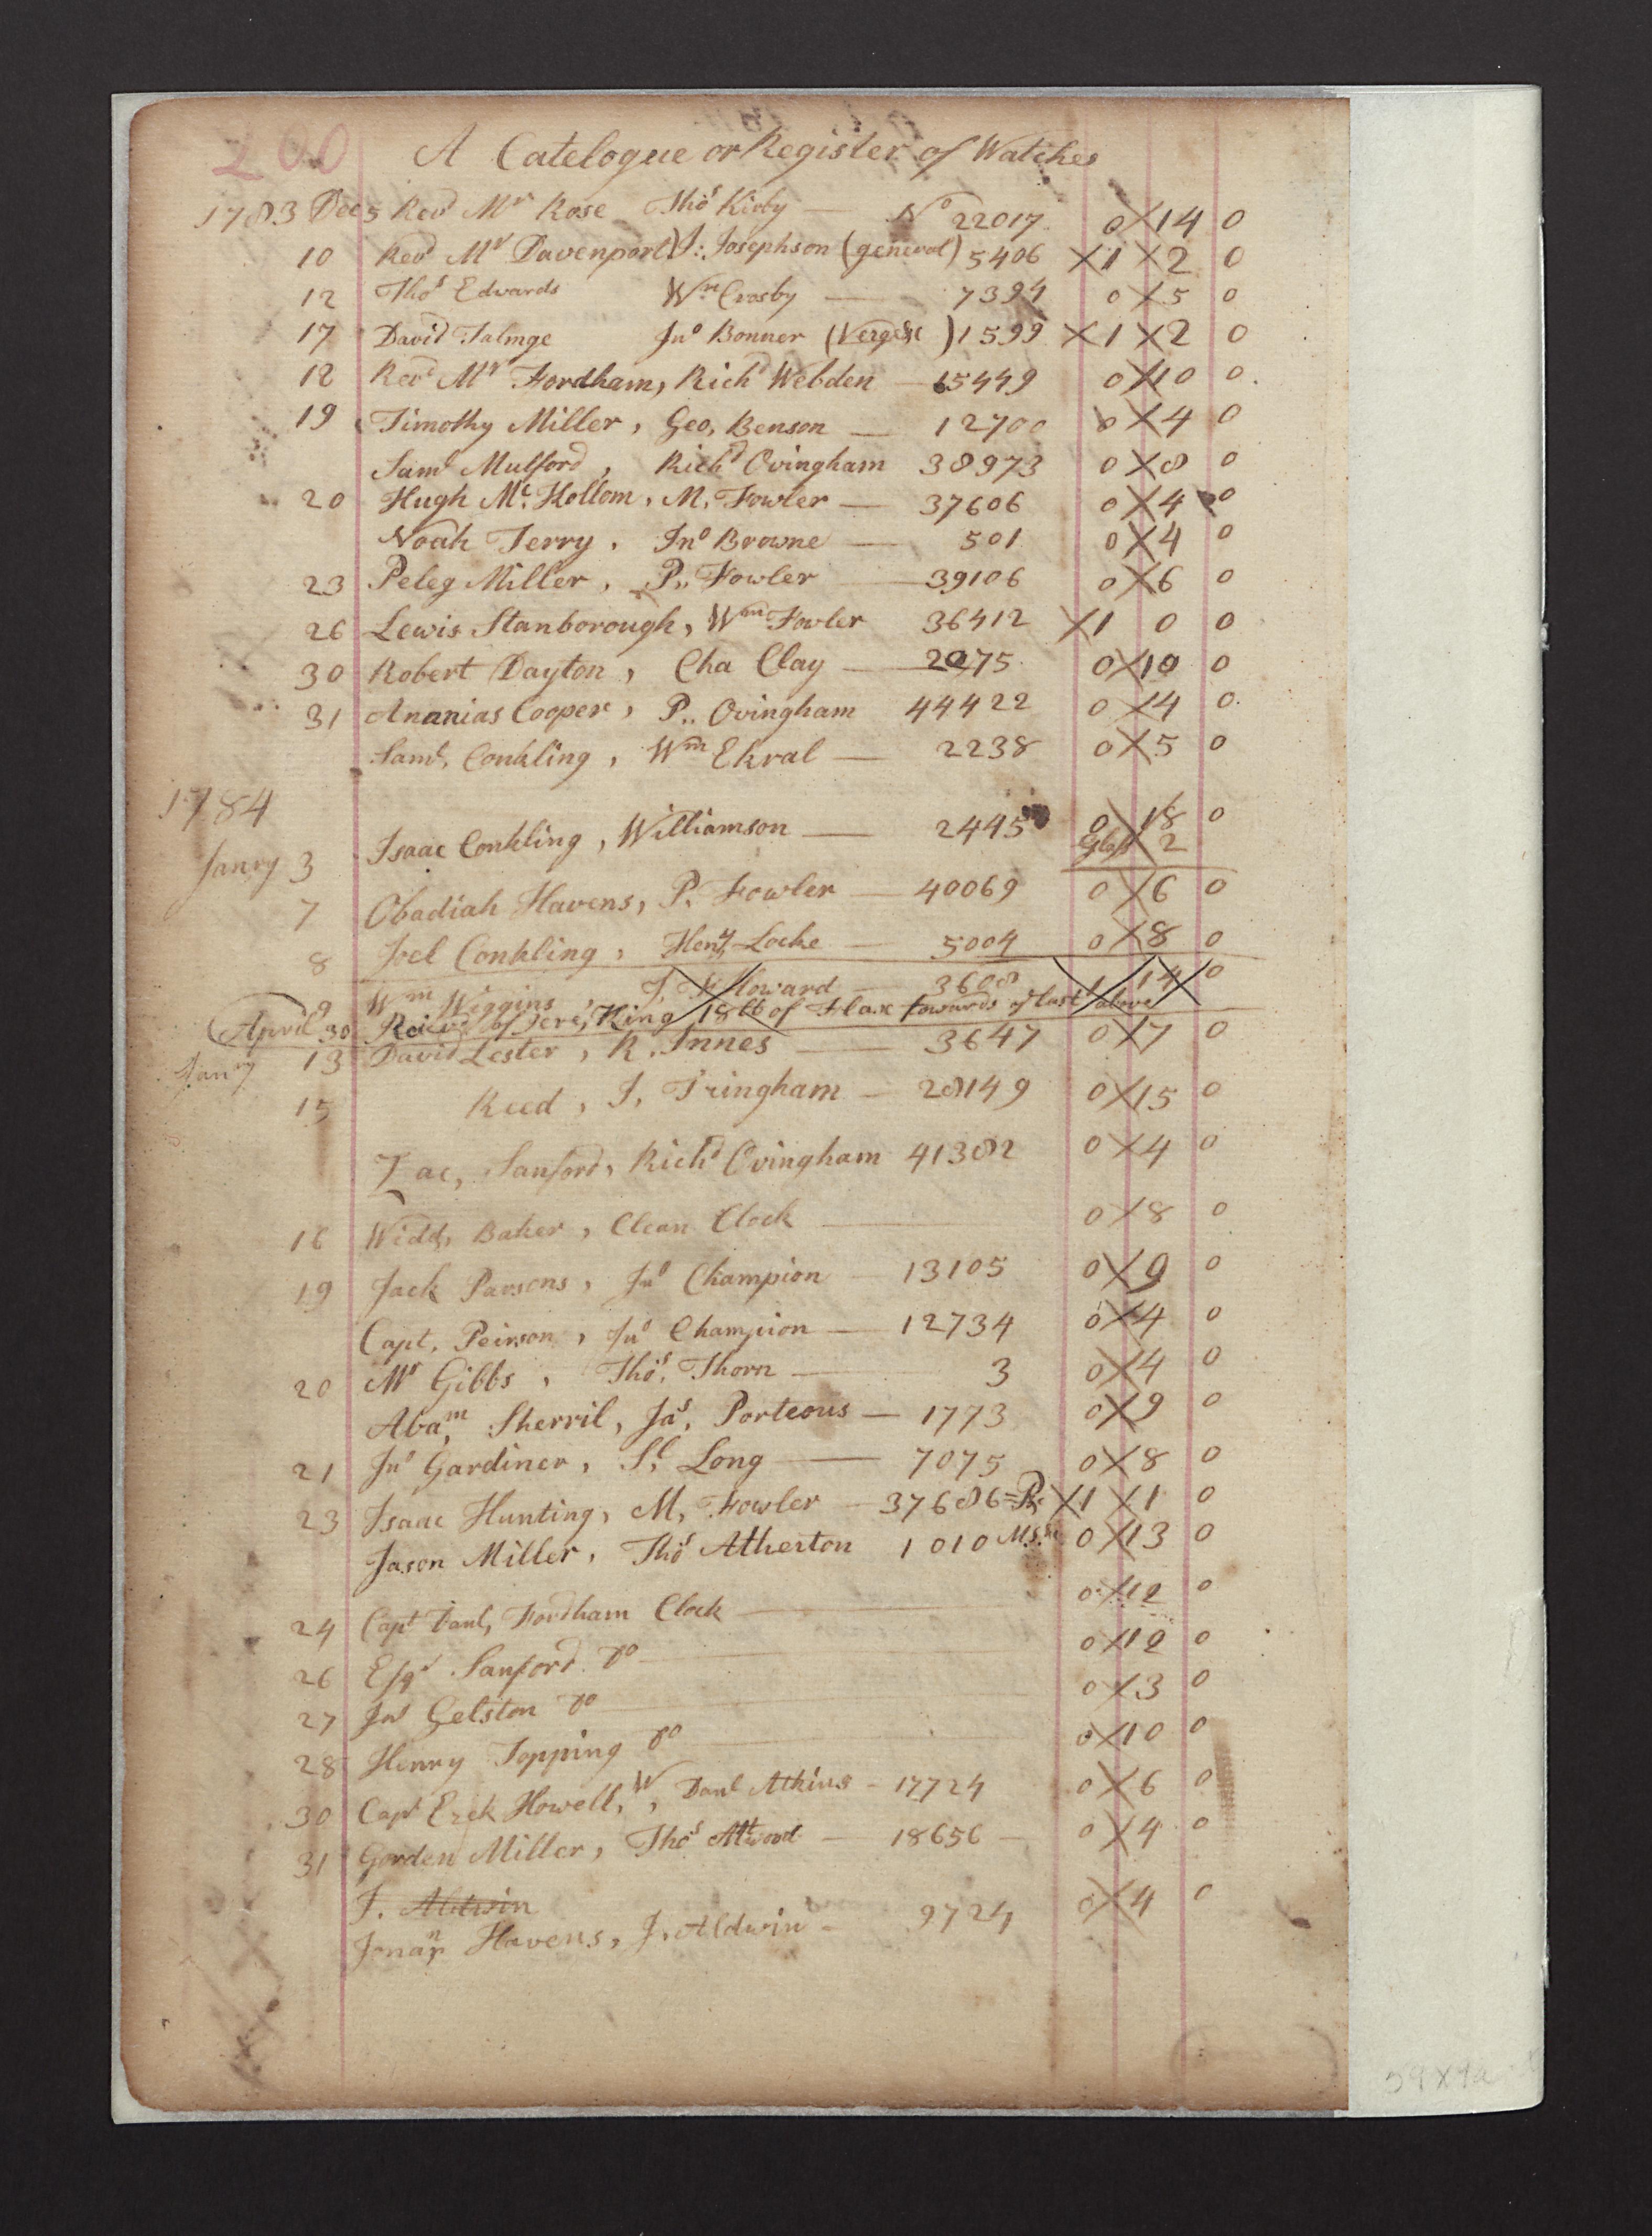 200 A Catelogue or Register of Watches
1783 Dec 5 Revd Mr Rose Thos Kirby — No 22017 0 14 0
10 Revd Mr Davenport) J: Josephson (general) 5406 1 2 0
12 Thos Edwards Wm Crosby — 7394 0 5 0
17 David Talmge Jno Bonner (Verge &c) 1599 1 2 0
12 Revd Mr Fordham, Richd Webden — 15449 0 10 0
19 Timothy Miller, Geo, Benson — 12700 0 4 0
Saml Mulford, Richd Ovingham 38973 0 8 0
20 Hugh Mc. Hollom, M, Fowler — 37606 0 4 0
Noah Terry, Jno Browne — 501 0 4 0
23 Peleg Miller, P,, Fowler — 39106 0 6 0
26 Lewis Stanborough, Wm Fowler 36412 1 0 0
30 Robert Dayton, Cha Clay — 2075 0 10 0
31 Ananias Cooper, P.. Ovingham 44422 0 14 0
Saml, Conkling, Wm Ekral — 2238 0 5 0
1784
Janry 3 Isaac Conkling, Williamson — 2445 0 18 0
Glass 2
7 Obadiah Havens, P, Fowler — 40069 0 6 0
8 Joel Conkling, Heny Locke — 5004 0 8 0
9 Wm Wiggins, J, Howard — 3608 1 14 0
April 30 Reicvd of Jere, King 18 lb of Flax towards ye last above
Janry 13 David Lester, R, Innes — 3647 0 7 0
15 Reed, J, Tringham — 28149 0 15 0
Zac, Sanford, Richd Ovingham 41382 0 4 0
16 Widdo, Baker, Clean Clock — 0 8 0
19 Jack Parsons, Jno Champion — 13105 0 9 0
Capt, Peirson, Jno Champion — 12734 0 4 0
20 Mr Gibbs, Thos, Thorn — 3 0 4 0
Abam, Sherril, Jas, Porteous — 1773 0 9 0
21 Jno Gardiner, Sl, Long — 7075 0 8 0
23 Isaac Hunting, M, Fowler — 37686 1 1 0
Jason Miller, Thos Atherton 1010 0 13 0
24 Capt Danl, Fordham Clock — 0 12 0
26 Esqr Sanford Do — 0 12 0
27 Jno Gelston Do — 0 3 0
28 Henry Topping Do — 0 10 0
30 Capt Ezek Howell, W, Danl Atkins - 17724 0 6 0
31 Gorden Miller, Thos Attwood — 18656 — 0 4 0
J. Aldwin
Jonan Havens, J, Aldwin — 9724 0 4 0